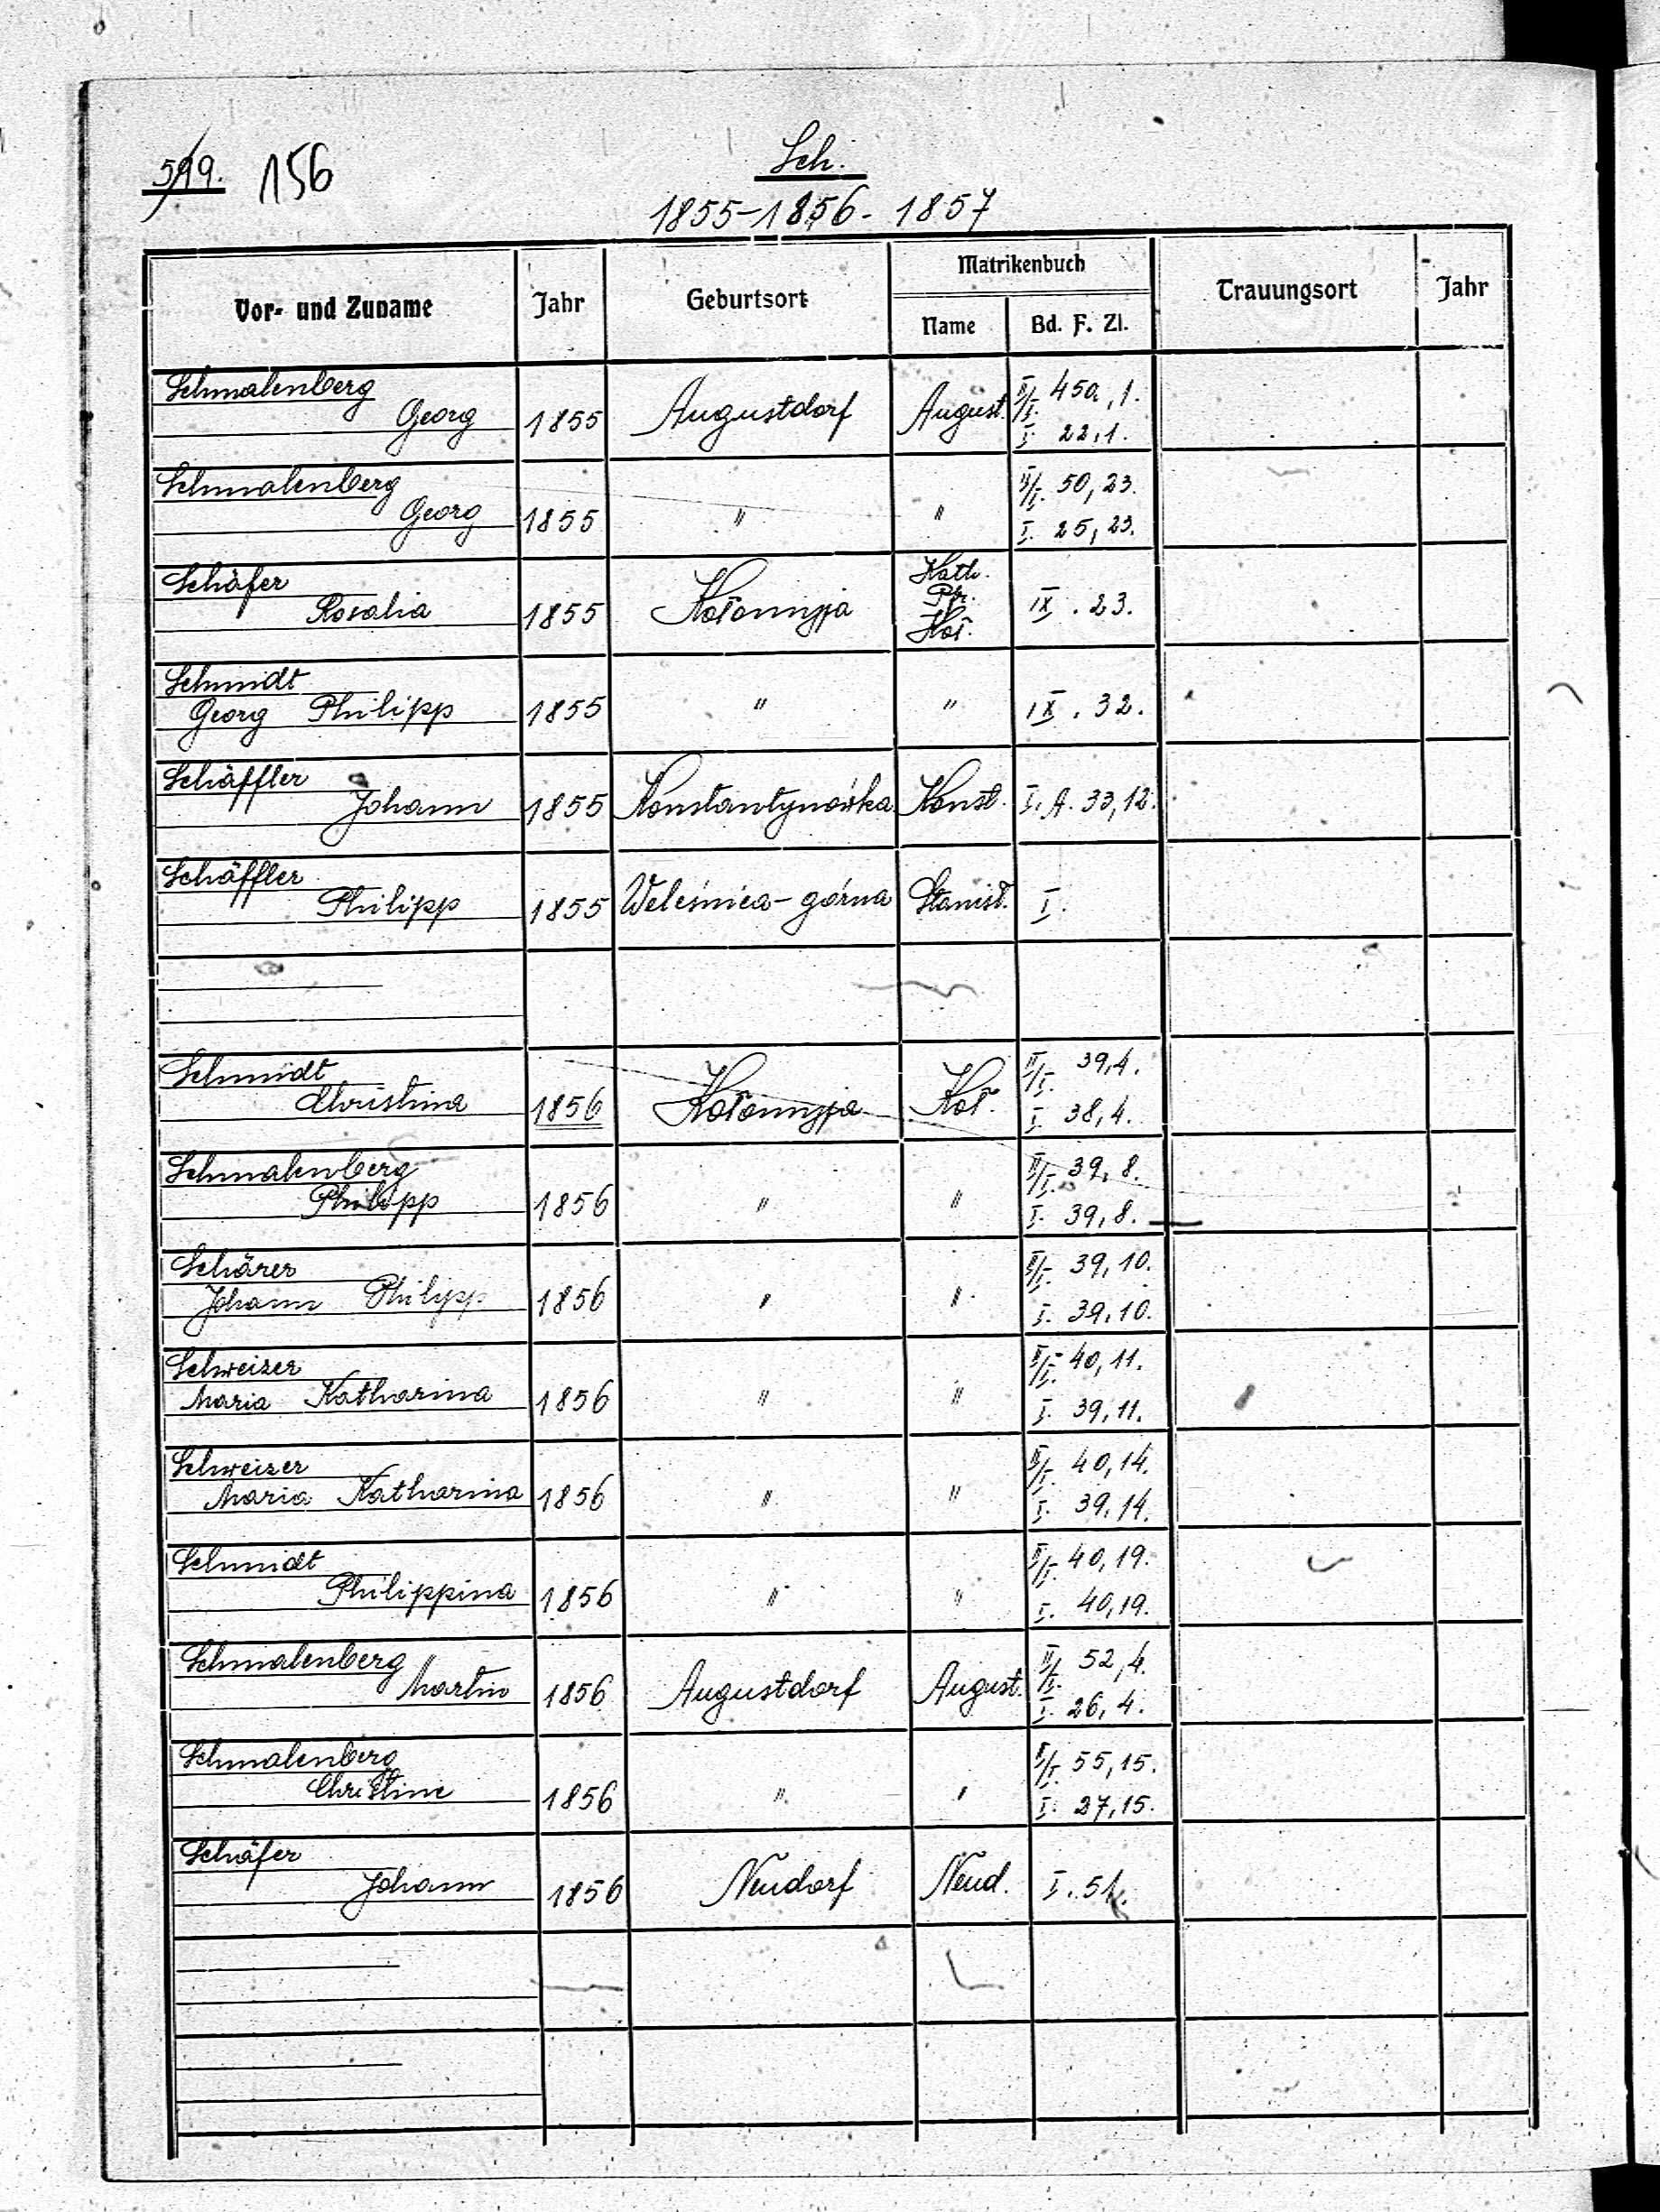 599. 156
Sch.
1855-1856-1857
Vor- und Zuname Jahr Geburtsort Matrikenbuch Trauungsort Jahr
Name Bd. F. Zl.
Schmalenberg
Georg 1855 Augustdorf August. II/I. 450, 1.
I. 22, 1.
Schmalenberg
Georg 1855 " " II/I. 50, 23.
I. 25, 23.
Schäfer
Rosalia 1855 Kołomyja Kath. Pfr. Koł. IX. 23.
Schmidt
Georg Philipp 1855 " " IX. 32.
Schäffler
Johann 1855 Konstantynówka Konst. I. A. 33, 12.
Schäffler
Philipp 1855 Weleśnica-górna Stanisł. I.
Schmidt
Christina 1856 Kołomyja Koł. II/I. 39, 4.
I. 38, 4.
Schmalenberg
Philipp 1856 " " II/I. 39, 8.
I. 39, 8.
Schärer
Johann Philipp 1856 " " II/I. 39, 10.
I. 39, 10.
Schweizer
Maria Katharina 1856 " " II/I. 40, 11.
I. 39, 11.
Schweizer
Maria Katharina 1856 " " II/I. 40, 14.
I. 39, 14.
Schmidt
Philippina 1856 " " II/I. 40, 19.
I. 40, 19.
Schmalenberg
Martin 1856 Augustdorf August. II/I. 52, 4.
I. 26, 4.
Schmalenberg
Christine 1856 " " II/I. 55, 15.
I. 27, 15.
Schäfer
Johann 1856 Neudorf Neud. I. 51.